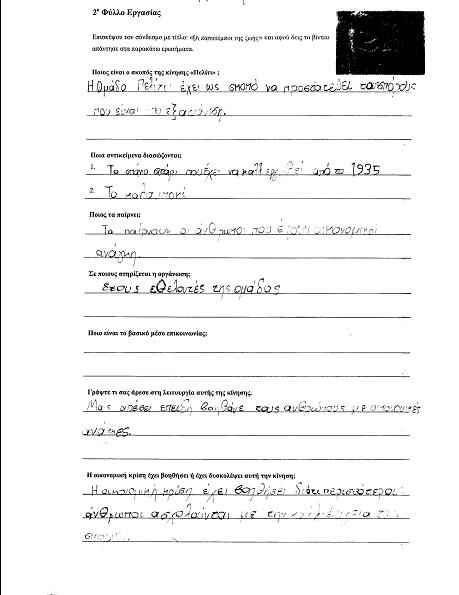 2° Φύλλο Εργασίας
Επισκέψου τον σύνδεσμο με τίτλο: «Οι παππούδες της ζωής» και αφού δεις το βίντεο
απάντησε στα παρακάτω ερωτήματα.
Ποιος είναι ο σκοπός της κίνησης «Πελίτι» ;
Η Ομάδα Πελίτι έχει ως σκοπό να προστατεύει τους σπόρους
που είναι
Ποια αντικείμενα διασώζονται;
1. Το σιτάρι που έχει να καλλιεργηθεί από το 1935
2. Το καλαμποκι
Ποιος τα παίρνει;
Τα παίρνουν οι άνθρωποι που έχουν οικονομική
ανάγκη.
Σε ποιους στηρίζεται η οργάνωση;
Στους εθελοντές της ομάδας
Ποιο είναι το βασικό μέσο επικοινωνίας;
Γράψτε τι σας άρεσε στη λειτουργία αυτής της κίνησης.
Μας αρέσει επειδή βοηθάνε τους ανθρώπους με οικονομικές
ανάγκες.
Η οικονομική κρίση έχει βοηθήσει ή έχει δυσκολέψει αυτή την κίνηση;
Η οικονομική κρίση έχει βοηθήσει διότι περισσότεροι
άνθρωποι ασχολούνται με την